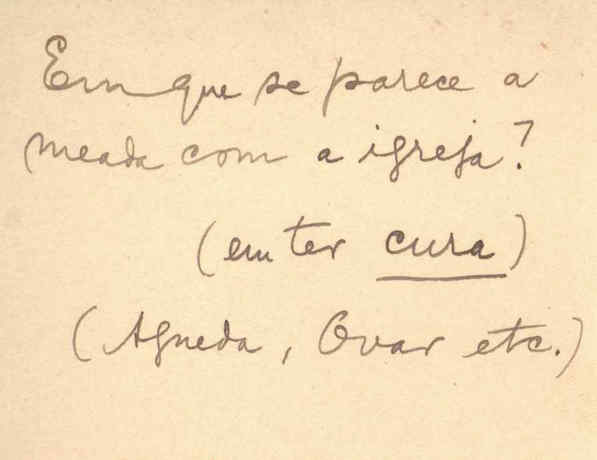 Em que se parece a
meada com a igreja?
(em ter cura)
(Agueda, Ovar etc.)